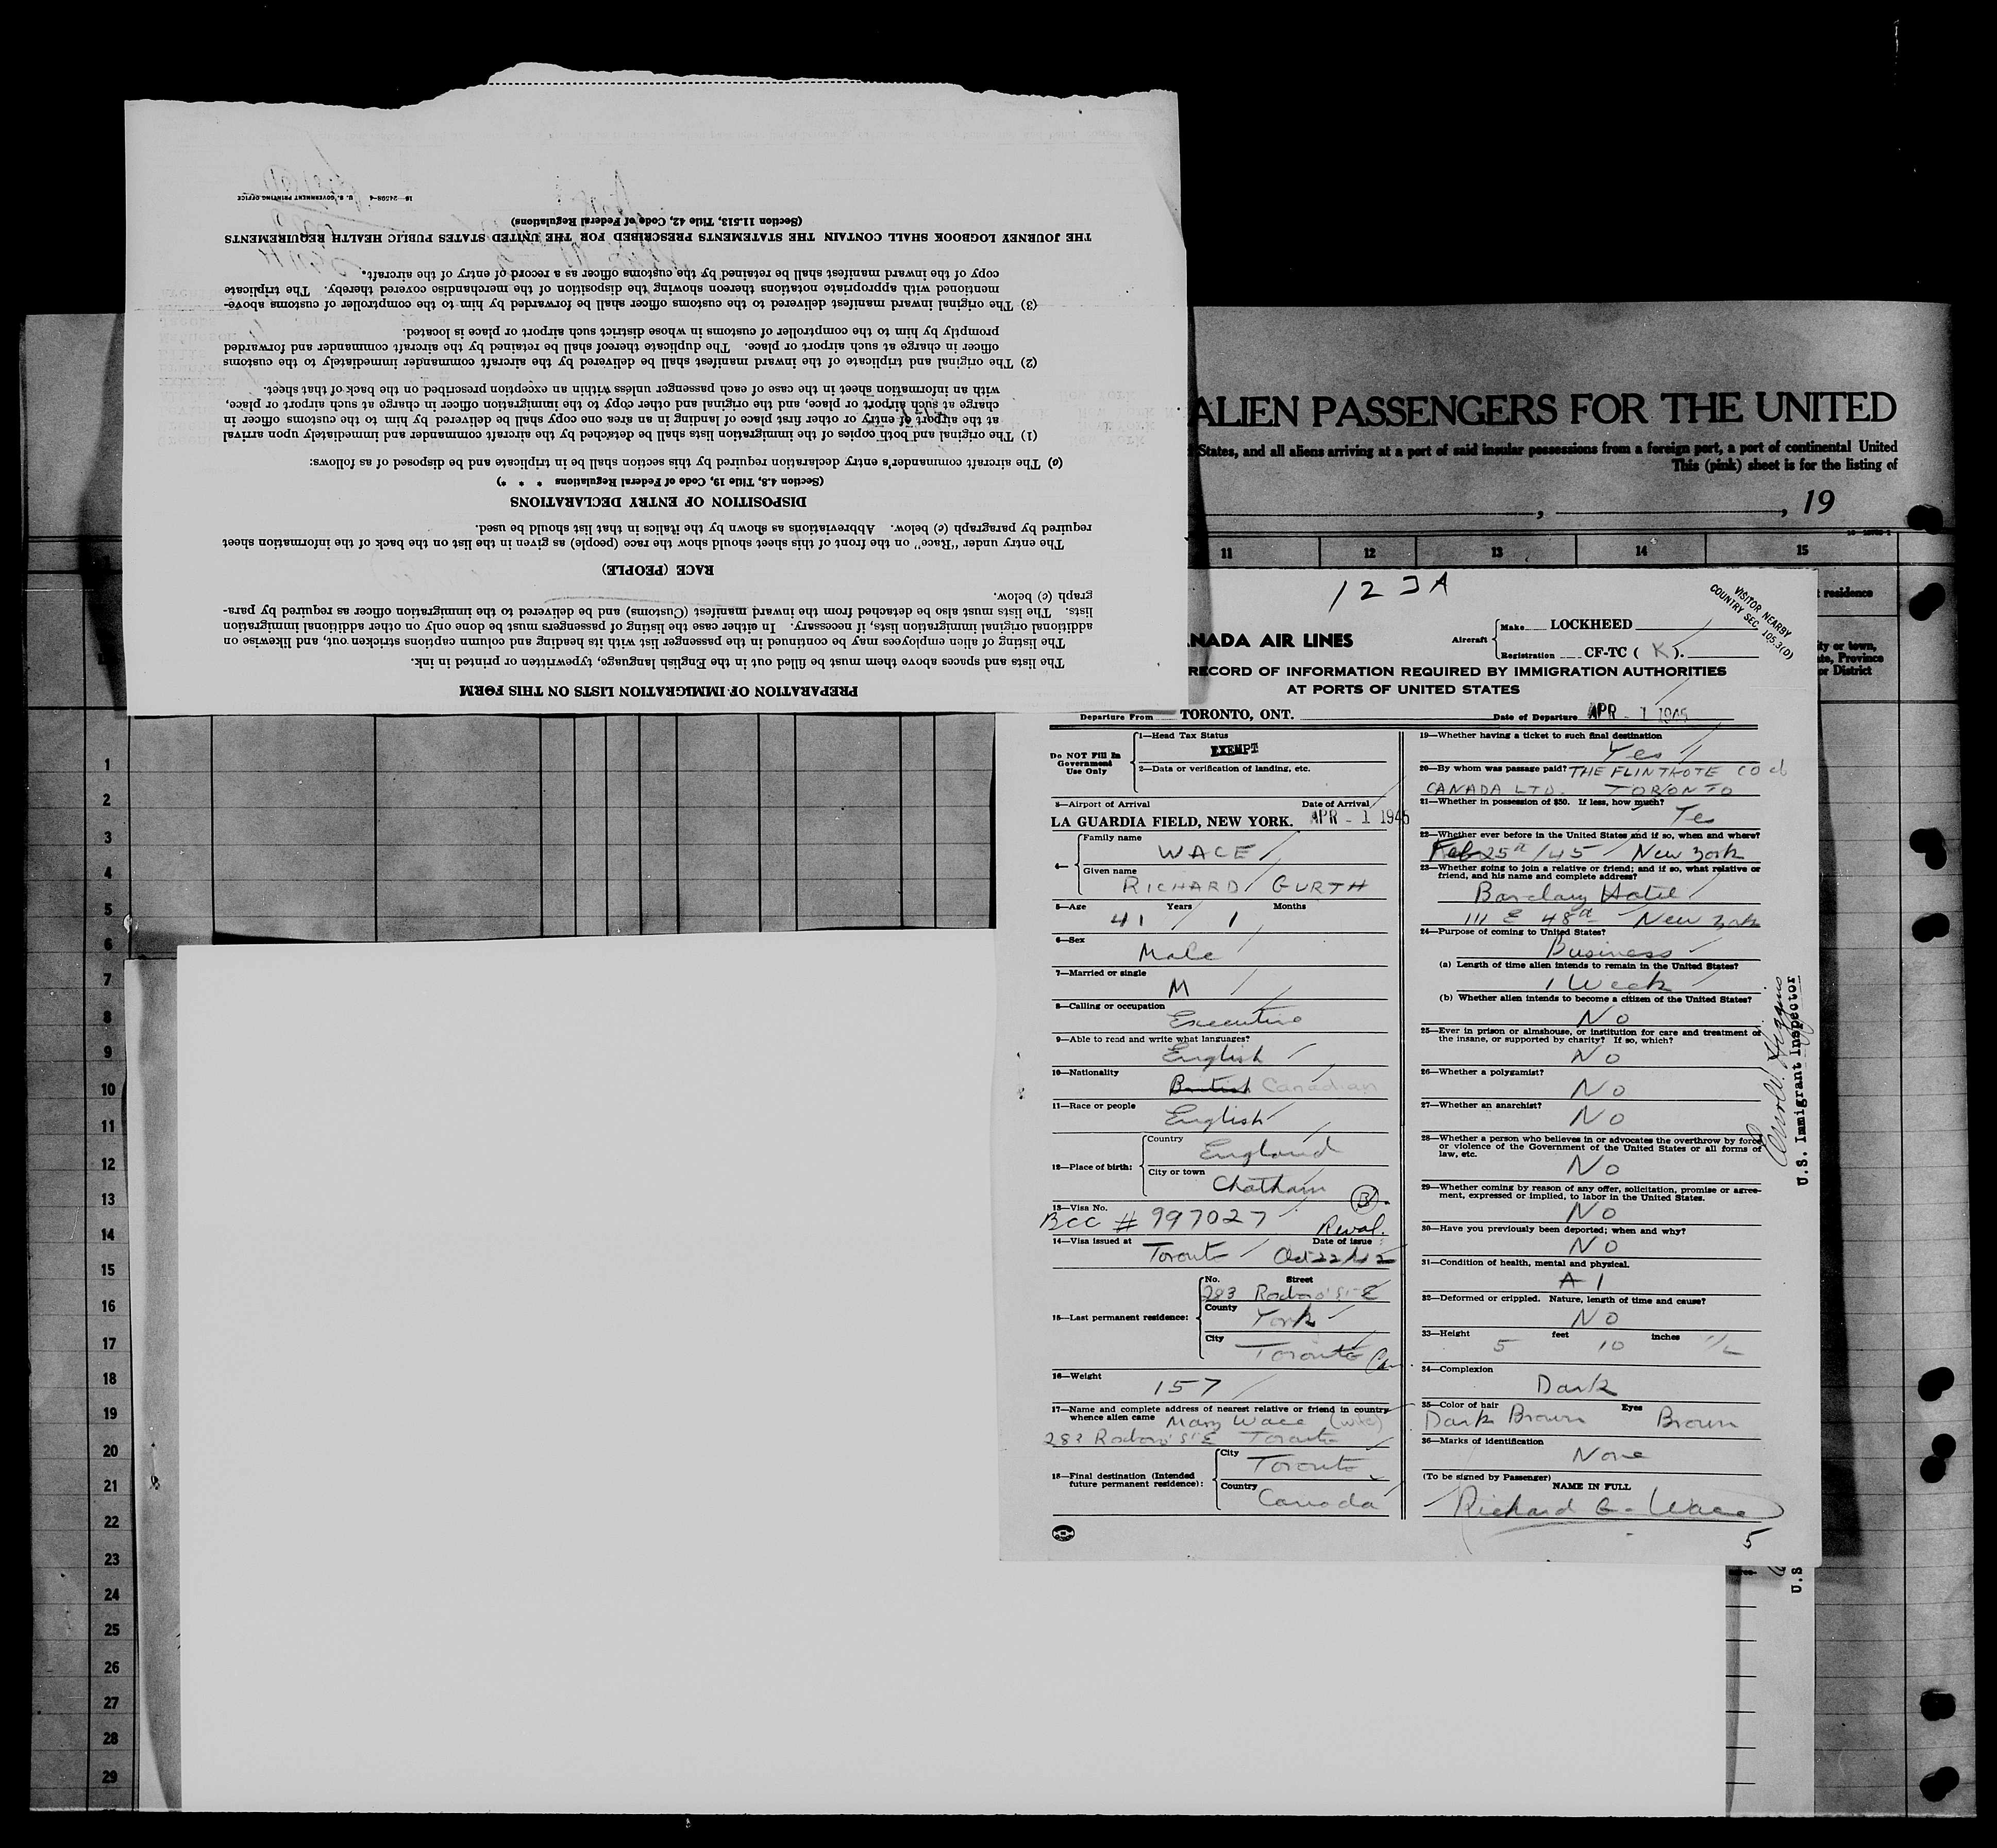 PREPARATION OF IMMIGRATION LISTS ON THIS FORM
The lists and spaces above them must be filled out in the English language, typewritten or printed in ink.
The listing of alien employees may be continued in the passenger list with its heading and column captions stricken out, and likewise on
additional original immigration lists, if necessary. In either case the listing of passengers must be done only on other additional immigration
lists. The lists must also be detached from the inward manifest (Customs) and be delivered to the immigration officer as required by para-
graph (c) below.
RACE (PEOPLE)
The entry under "Race" on the front of this sheet should show the race (people) as given in the list on the back of the information sheet
required by paragraph (c) below. Abbreviations as shown by the italics in that list should be used.
DISPOSITION OF ENTRY DECLARATIONS
(Section 4.8, Title 19, Code of Federal Regulations * * *)
(c) The aircraft commander's entry declaration required by this section shall be in triplicate and be disposed of as follows:
(1) The original and both copies of the immigration lists shall be detached by the aircraft commander and immediately upon arrival
at the airport of entry or other first place of landing in an area one copy shall be delivered by him to the customs officer in
charge at such airport or place, and the original and other copy to the immigration officer in charge at such airport or place,
with an information sheet in the case of each passenger unless within an exception prescribed on the back of that sheet.
(2) The original and triplicate of the inward manifest shall be delivered by the aircraft commander immediately to the customs
officer in charge at such airport or place. The duplicate thereof shall be retained by the aircraft commander and forwarded
promptly by him to the comptroller of customs in whose district such airport or place is located.
(3) The original inward manifest delivered to the customs officer shall be forwarded by him to the comptroller of customs above-
mentioned with appropriate notations thereon showing the disposition of the merchandise covered thereby. The triplicate
copy of the inward manifest shall be retained by the customs officer as a record of entry of the aircraft.
THE JOURNEY LOGBOOK SHALL CONTAIN THE STATEMENTS PRESCRIBED FOR THE UNITED STATES PUBLIC HEALTH REQUIREMENTS
(Section 11.513, Title 42, Code of Federal Regulations)
16—24598-4 U. S. GOVERNMENT PRINTING OFFICE
ALIEN PASSENGERS FOR THE UNITED
States, and all aliens arriving at a port of said insular possessions from a foreign port, a port of continental United
This (pink) sheet is for the listing of
, , 19
11 12 13 14 15
residence
ity or town,
te, Province
or District
123A
VISITOR NEARBY
COUNTRY SEC. 105.3(D)
NADA AIR LINES
Aircraft
Make LOCKHEED
Registration CF-TC ( K ).
RECORD OF INFORMATION REQUIRED BY IMMIGRATION AUTHORITIES
AT PORTS OF UNITED STATES
Departure From TORONTO, ONT. Date of Departure APR - 1 1945
Do NOT Fill In
Government
Use Only
1—Head Tax Status
EXEMPT
2—Data or verification of landing, etc.
3—Airport of Arrival Date of Arrival
LA GUARDIA FIELD, NEW YORK. APR - 1 1945
4— Family name
WACE
Given name
RICHARD GURTH
5—Age Years Months
41 1
6—Sex
Male
7—Married or single
M
8—Calling or occupation
Executive
9—Able to read and write what languages?
English
10—Nationality
British Canadian
11—Race or people
English
12—Place of birth: Country
England
City or town
Chatham
B
13—Visa No.
BCC # 997027 Reval.
14—Visa issued at Date of issue
Toronto Oct 22/42
15—Last permanent residence:
No. Street
283 Roxboro' St E
County
York
City
Toronto Can
16—Weight
157
17—Name and complete address of nearest relative or friend in country
whence alien came Mary Wace (wife)
283 Roxboro' St E Toronto
18—Final destination (Intended
future permanent residence):
City
Toronto
Country
Canada
19—Whether having a ticket to such final destination
Yes
20—By whom was passage paid? THE FLINTKOTE CO of
CANADA LTD. TORONTO
21—Whether in possession of $50. If less, how much?
Yes
22—Whether ever before in the United States and if so, when and where?
Feb 25th/45 New York
23—Whether going to join a relative or friend; and if so, what relative or
friend, and his name and complete address?
Barclay Hotel
111 E 48th New York
24—Purpose of coming to United States?
Business
(a) Length of time alien intends to remain in the United States?
1 Week
(b) Whether alien intends to become a citizen of the United States?
No
25—Ever in prison or almshouse, or institution for care and treatment of
the insane, or supported by charity? If so, which?
No
26—Whether a polygamist?
No
27—Whether an anarchist?
No
28—Whether a person who believes in or advocates the overthrow by force
or violence of the Government of the United States or all forms of
law, etc.
No
29—Whether coming by reason of any offer, solicitation, promise or agree-
ment, expressed or implied, to labor in the United States.
No
30—Have you previously been deported; when and why?
No
31—Condition of health, mental and physical.
A 1
32—Deformed or crippled. Nature, length of time and cause?
No
33—Height feet inches
5 10 1/2
34—Complexion
Dark
35—Color of hair Eyes
Dark Brown Brown
36—Marks of identification
None
(To be signed by Passenger)
NAME IN FULL
Richard G. Wace
5
U.S. Immigrant Inspector
U.S
1
2
3
4
5
6
7
8
9
10
11
12
13
14
15
16
17
18
19
20
21
22
23
24
25
26
27
28
29